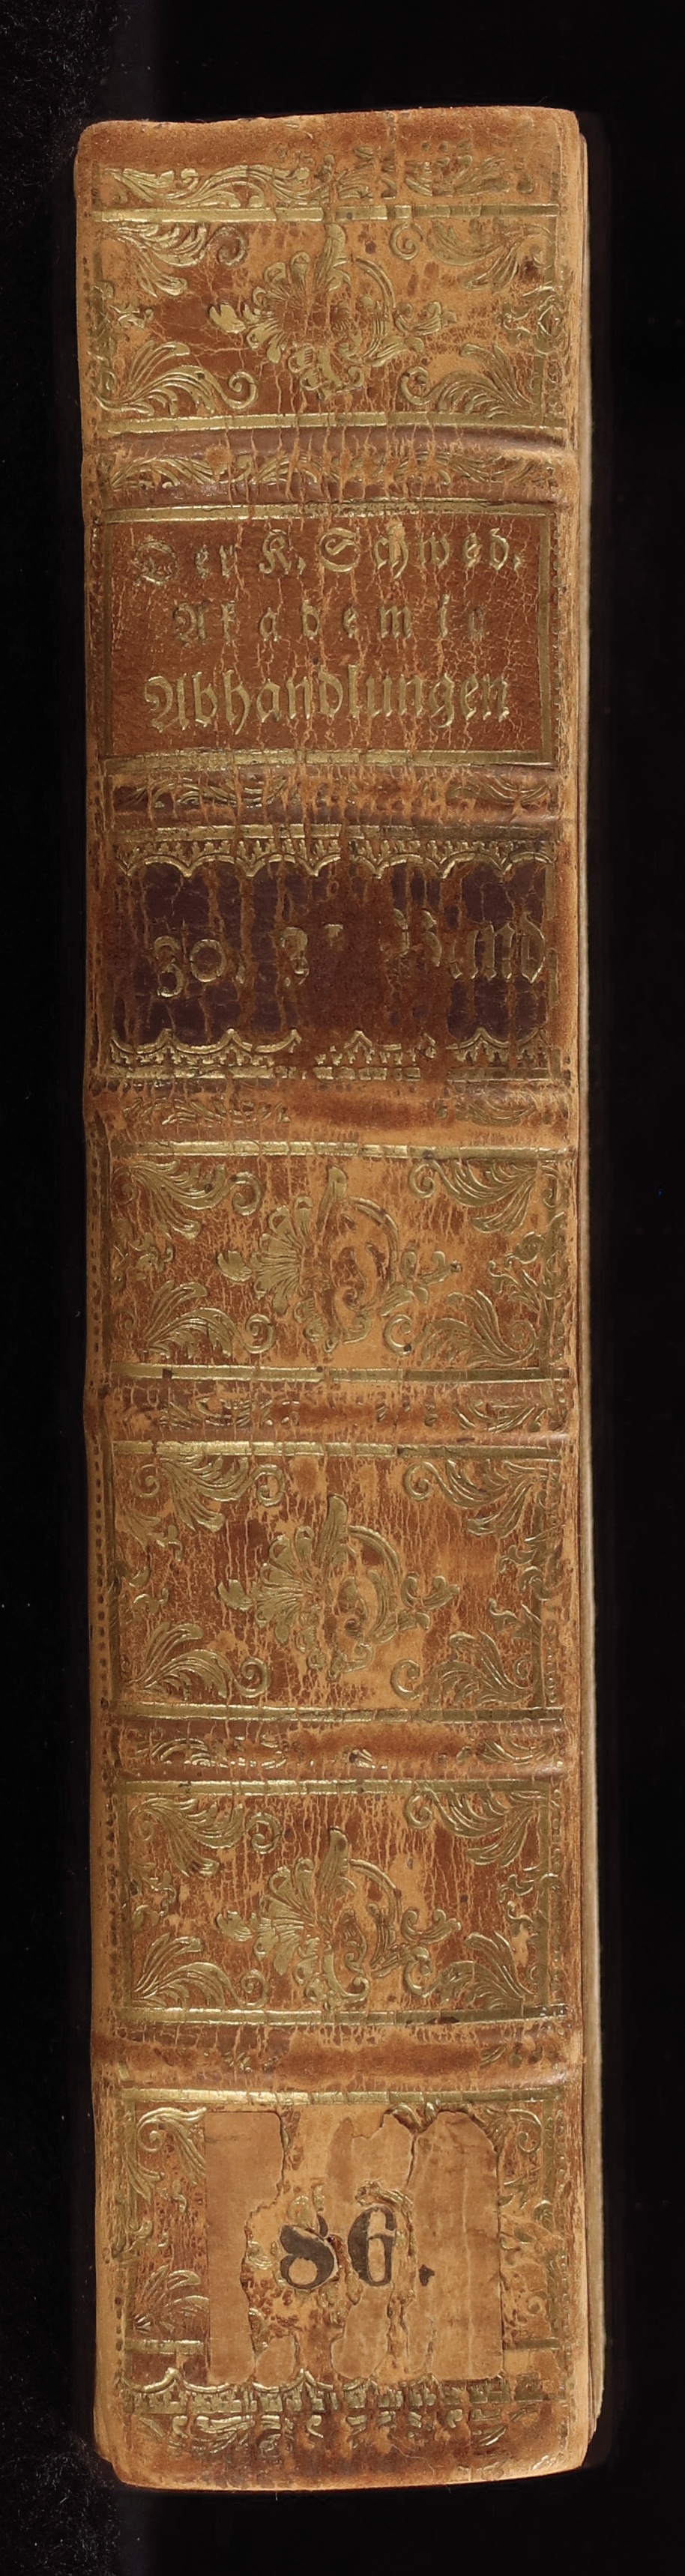 Der K. Schwed.
Akademie
Abhandlungen
30. Band
86.